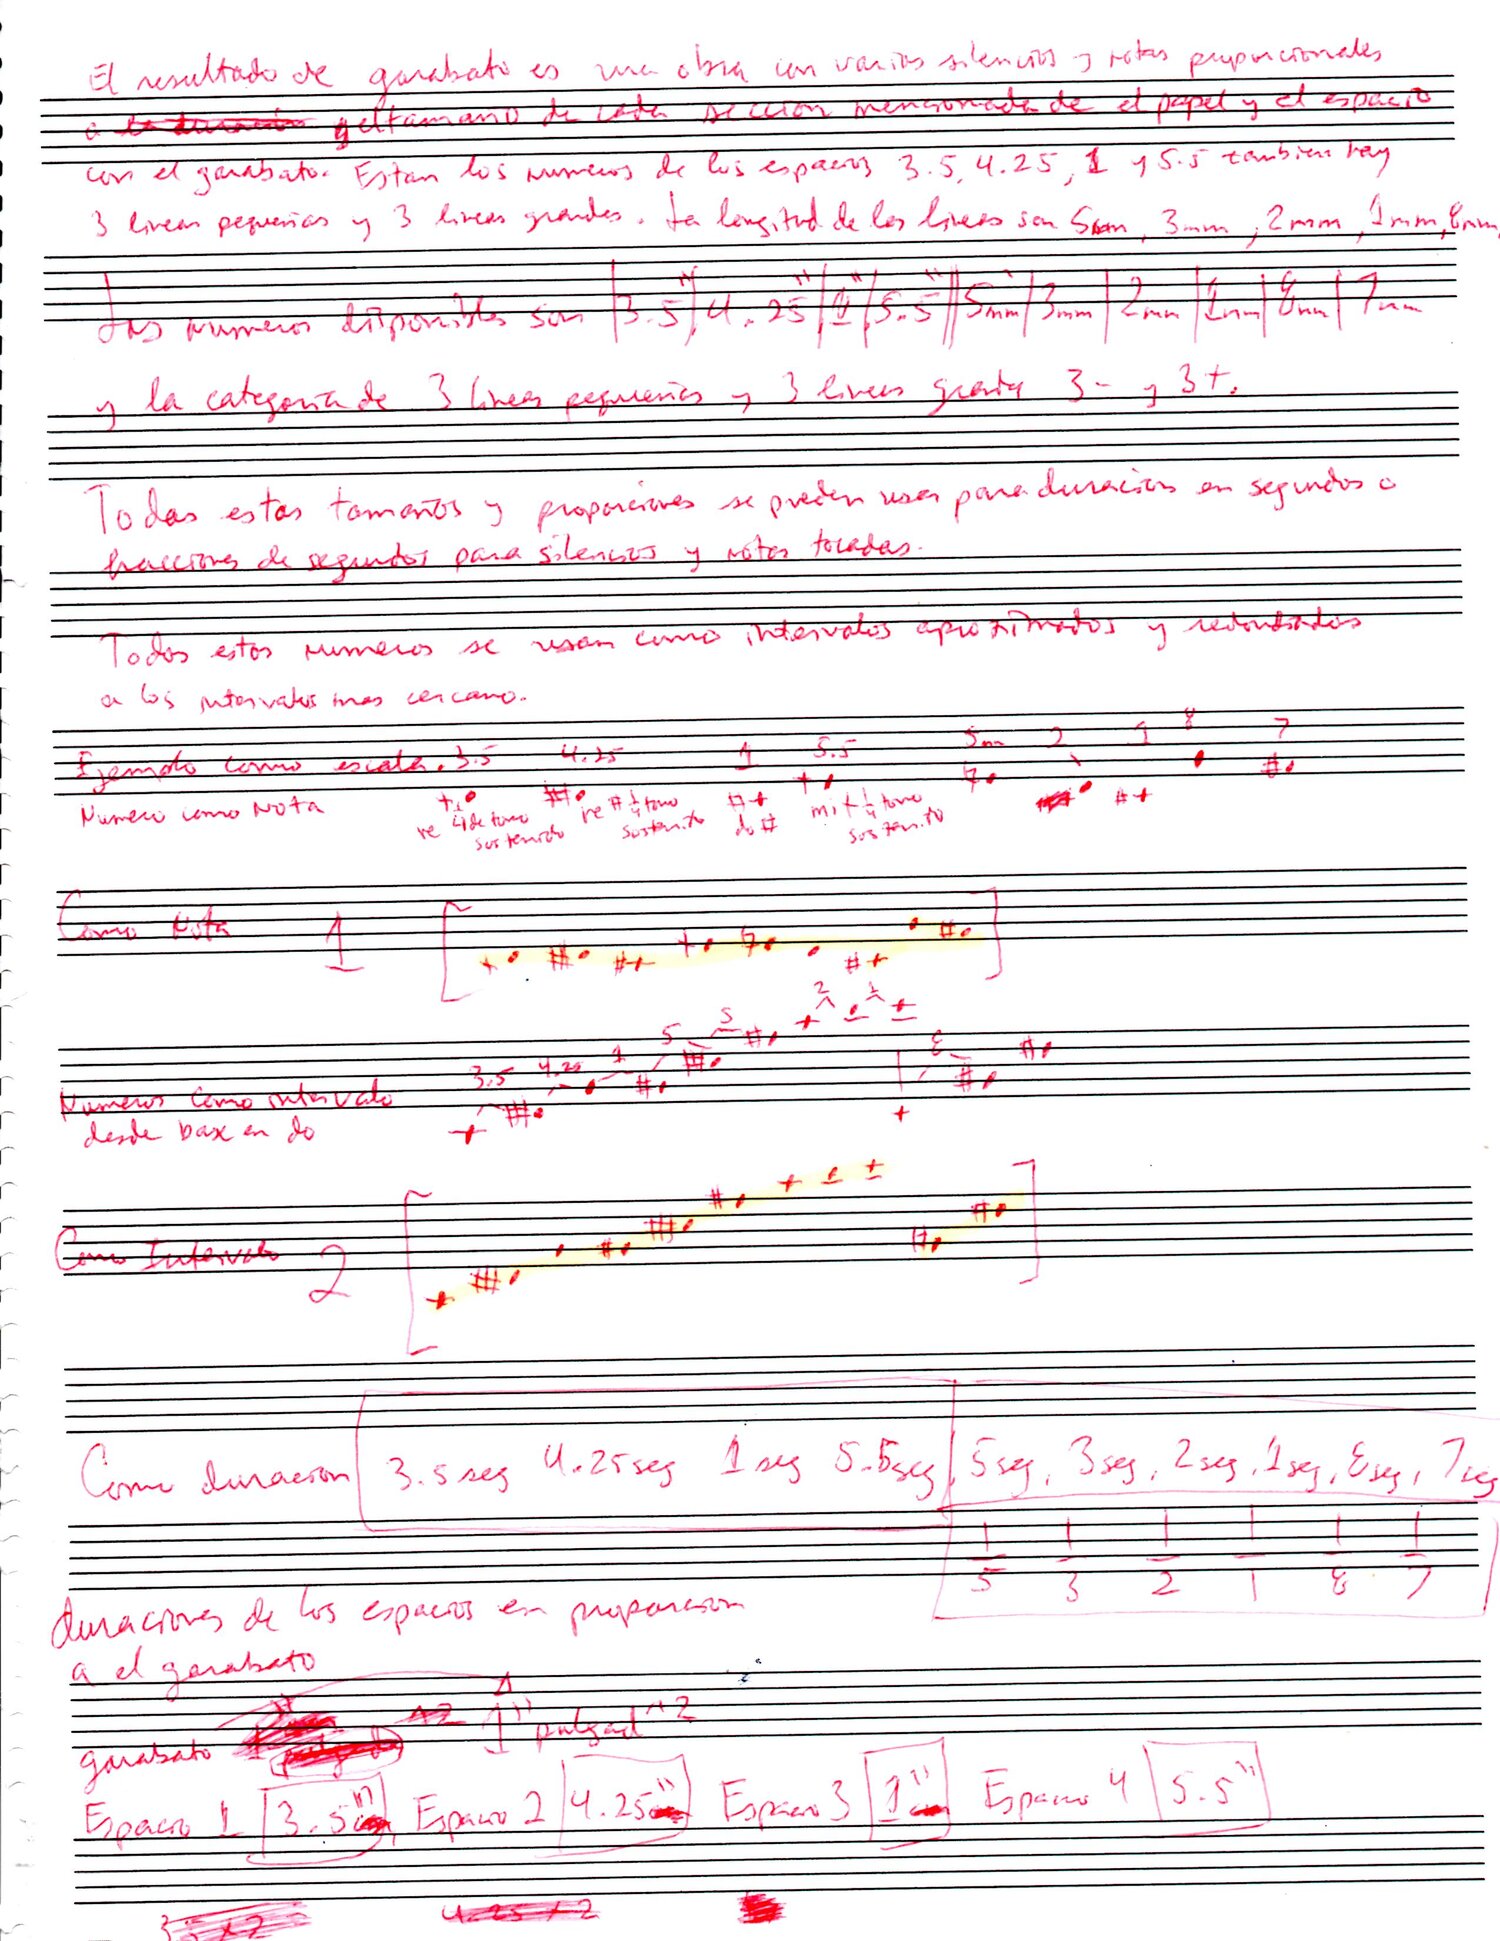 El resultado de garabato es una obra con varios silencios y notas proporcionales
a la duracion y el tamano de cada seccion mencionada de el papel y el espacio
con el garabato. Estan los numeros de los espacios 3.5, 4.25, 1 y 5.5 tambien hay
3 lineas pequeñas y 3 lineas grandes. La longitud de las lineas son 5mm, 3mm, 2mm, 1mm, 8mm,
Los numeros disponibles son |3.5"|4.25"|1"|5.5"||5mm|3mm|2mm|1mm|8mm|7mm
y la categoria de 3 lineas pequeñas y 3 lineas grandes 3- y 3+.
Todas estas tamaños y proporciones se pueden usar para duracion en segundos o
fracciones de segundos para silencios y notas tocadas.
Todos estos numeros se usan como intervalos aproximados y redondeados
a los intervalos mas cercano.
Ejemplo como escala. 3.5 4.25 1 5.5 5mm 2 1 8 7
Numero como Nota
re 1/4 de tono sostenido re # 1/4 tono sostenito do # mi + 1/4 tono sostenito
Como Nota 1
3.5 4.25 1 5 5 2 1 8
Numeros como intervalo
desde base en do
Como Intervalo 2
Como duracion 3.5 seg 4.25 seg 1 seg 5.5 seg 5 seg, 3 seg, 2 seg, 1 seg, 8 seg, 7 seg
1/5 1/3 1/2 1/1 1/8 1/7
duraciones de los espacios en proporcion
a el garabato
garabato 1" pulgad ^2
Espacio 1 3.5" Espacio 2 4.25" Espacio 3 1" Espacio 4 5.5"
4.25 x 2